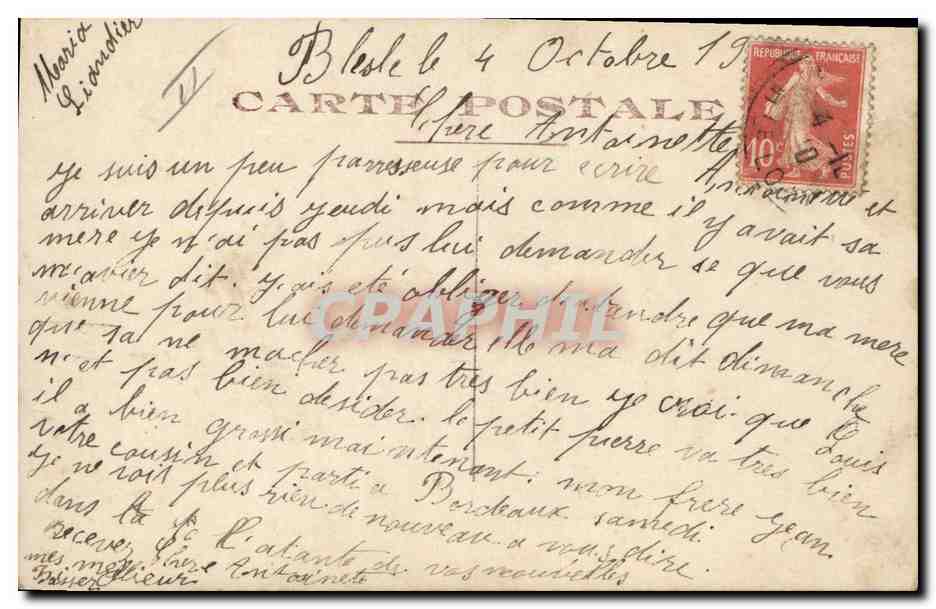 Maria
Liandier
Blesle le 4 Octobre 19
CARTE POSTALE
REPUBLIQUE FRANÇAISE
10c
POSTES
Chere Antoinette
Je suis un peu parresseuse pour ecrire
et
arriver depuis jeudi mais comme il y avait sa
mere je n'ai pas pus lui demander se que vous
m'avier dit. j'ais été obliger d'atandre que ma mere
vienne pour lui demander elle ma dit dimanche
que sa ne macher pas tres bien je croi que Louis
n'et pas bien desider. le petit pierre va tres bien
il a bien grossi maintenant. mon frere jean
votre cousin et parti a Bordeaux samedi.
je ne vois plus rien de nouveau a vous dire.
dans la l'atante de vos nouvelles
recever chere Antoainete
mes meilleur
Baiser
CPAPHIL